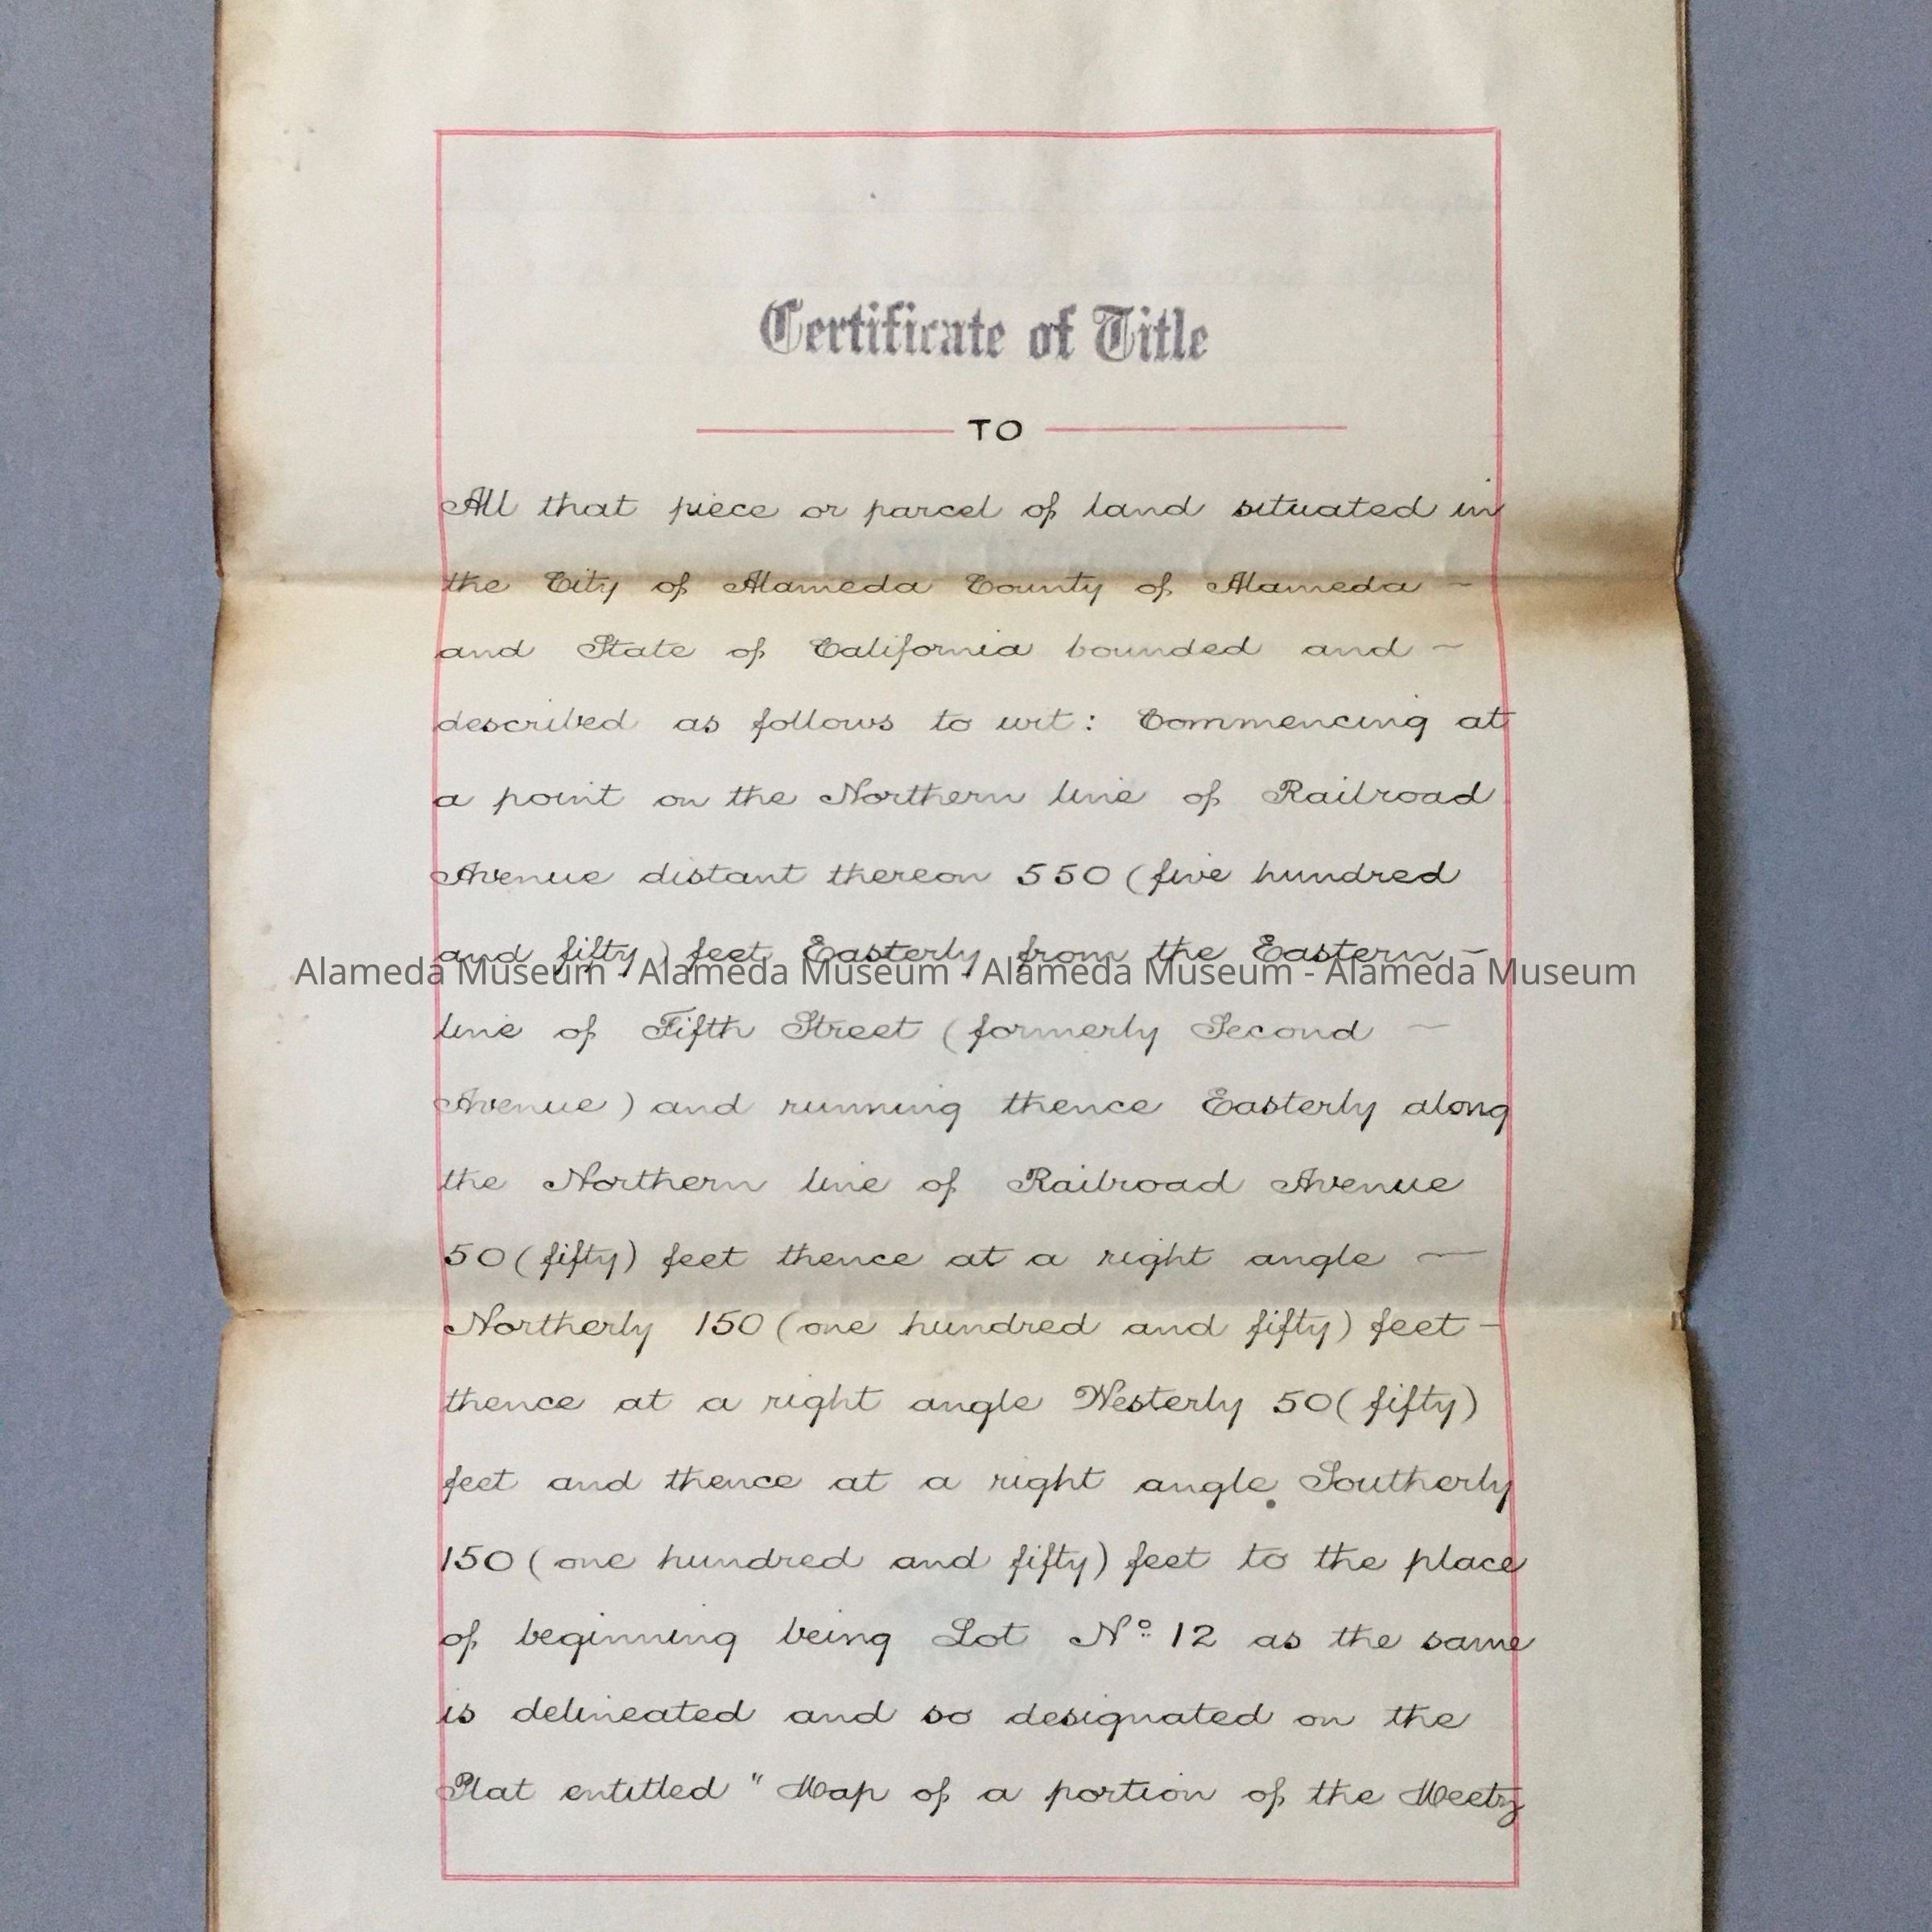 Certificate of Title
TO
All that piece or parcel of land situated in
the City of Alameda County of Alameda –
and State of California bounded and –
described as follows to wit: Commencing at
a point on the Northern line of Railroad
Avenue distant thereon 550 (five hundred
and fifty) feet Easterly from the Eastern –
Alameda Museum - Alameda Museum - Alameda Museum - Alameda Museum
line of Fifth Street (formerly Second –
Avenue) and running thence Easterly along
the Northern line of Railroad Avenue
50 (fifty) feet thence at a right angle –
Northerly 150 (one hundred and fifty) feet –
thence at a right angle Westerly 50 (fifty)
feet and thence at a right angle Southerly
150 (one hundred and fifty) feet to the place
of beginning being Lot Nº 12 as the same
is delineated and so designated on the
Plat entitled " Map of a portion of the Meetz